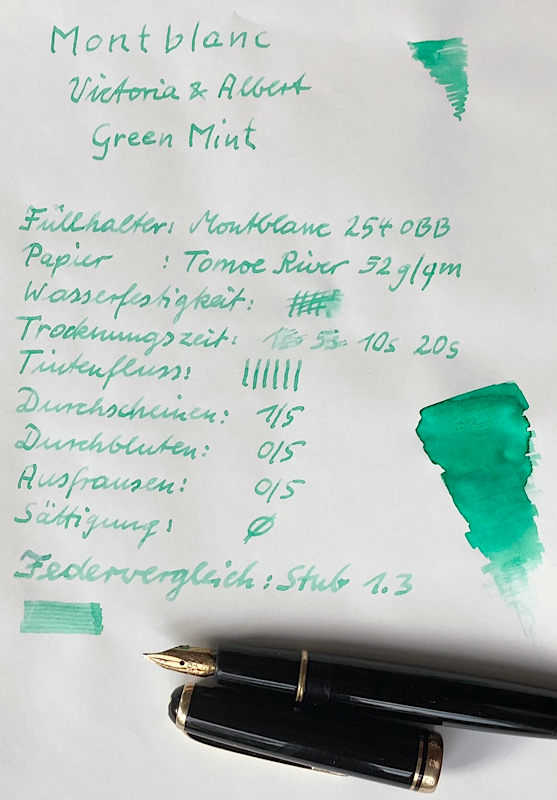 Montblanc
Victoria & Albert
Green Mint
Füllhalter: Montblanc 254 OBB
Papier : Tomoe River 52g/qm
Wasserfestigkeit:
Trocknungszeit: 1s 5s 10s 20s
Tintenfluss: ||||||
Durchscheinen: 1/5
Durchbluten: 0/5
Ausfransen: 0/5
Sättigung: Ø
Federvergleich: Stub 1.3